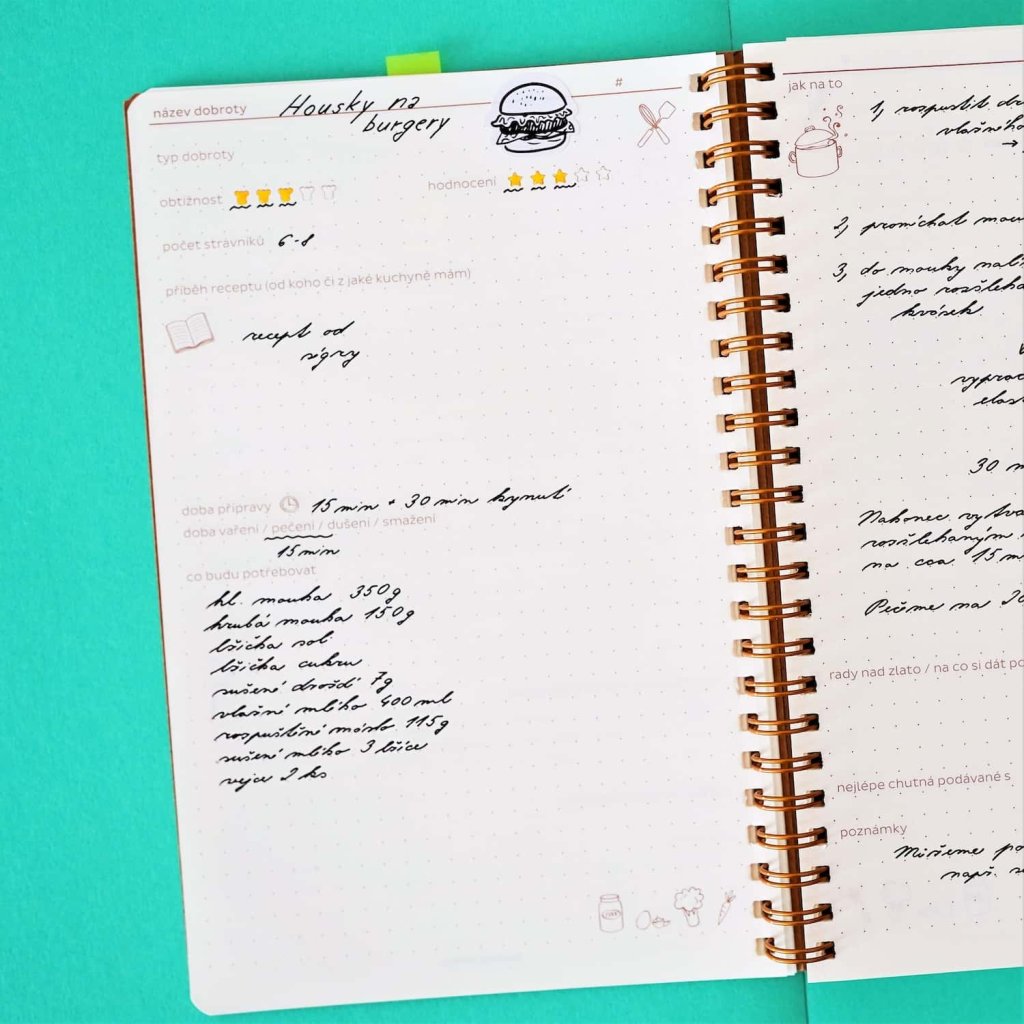 název dobroty Housky na
burgery
#
typ dobroty
obtížnost
hodnocení
počet strávníků 6-8
příběh receptu (od koho či z jaké kuchyně mám)
recept od
ségry
doba přípravy 15 min + 30 min kynutí
doba vaření / pečení / dušení / smažení
15 min
co budu potřebovat
hl. mouka 350g
hrubá mouka 150g
lžička soli
lžička cukru
sušené droždí 7g
vlažné mléko 400 ml
rozpuštěné máslo 115g
sušené mléko 3 lžíce
vejce 2 ks
jak na to
1, rozpustit
vlažného
→
2, promíchat
3, do mouky
jedno
kvásek
30
Nakonec
rozšlehaným
na cca 15
Pečeme na
rady nad zlato / na co si dát
nejlépe chutná podávané s
poznámky
Můžeme
např.